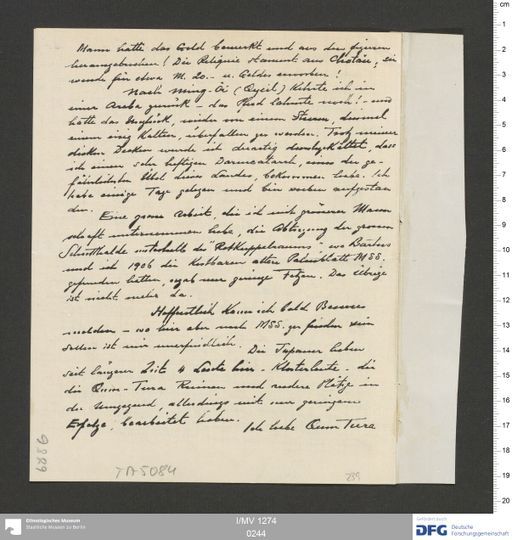 Mann hatte das Gold bemerkt und aus den Figuren
herausgebrochen! Die Reliquie stammt aus Chotän, sie
wurde für etwa M. 20.- u. Geldes erworben!
Nach Ming-Öi (Qyzil) kehrte ich in
einer Araba zurück - das Pferd lahmte noch! - und
hatte das Unglück, wieder von einem Sturm, diesmal
einem eisig kalten, überfallen zu werden. Trotz meiner
dicken Decken wurde ich derartig durchgekältet, dass
ich einen sehr heftigen Darmcatarrh, eines der ge-
fährlichsten Übel dieses Landes, bekommen habe. Ich
habe einige Tage gelegen und bin soeben aufgestan
den.
Eine grosse Arbeit, die ich mit grösserer Mann
schaft unternommen habe, die Abtragung der grossen
Schutthalde unterhalb des "Rotkuppelraums" - wo Bartus
und ich 1906 die kostbaren alten Palmblatt MSS.
gefunden hatten, ergab nur geringe Fetzen. Das Übrige
ist nicht mehr da.
Hoffentlich kann ich bald Besseres
melden - wo hier aber noch MSS. zu finden sein
sollen ist mir unerfindlich. Die Japaner haben
seit längerer Zeit 4 Leute hier - Klosterleute - die
die Qum-Tura Ruinen und andere Plätze in
der Umgegend, allerdings mit nur geringem
Erfolge, bearbeitet haben.
Ich habe Qum Tura
TA 5084
239
Ethnologisches Museum
Staatliche Museen zu Berlin
I/MV 1274
0244
Gefördert durch
DFG
Deutsche
Forschungsgemeinschaft
cm
1
2
3
4
5
6
7
8
9
10
11
12
13
14
15
16
17
18
19
20